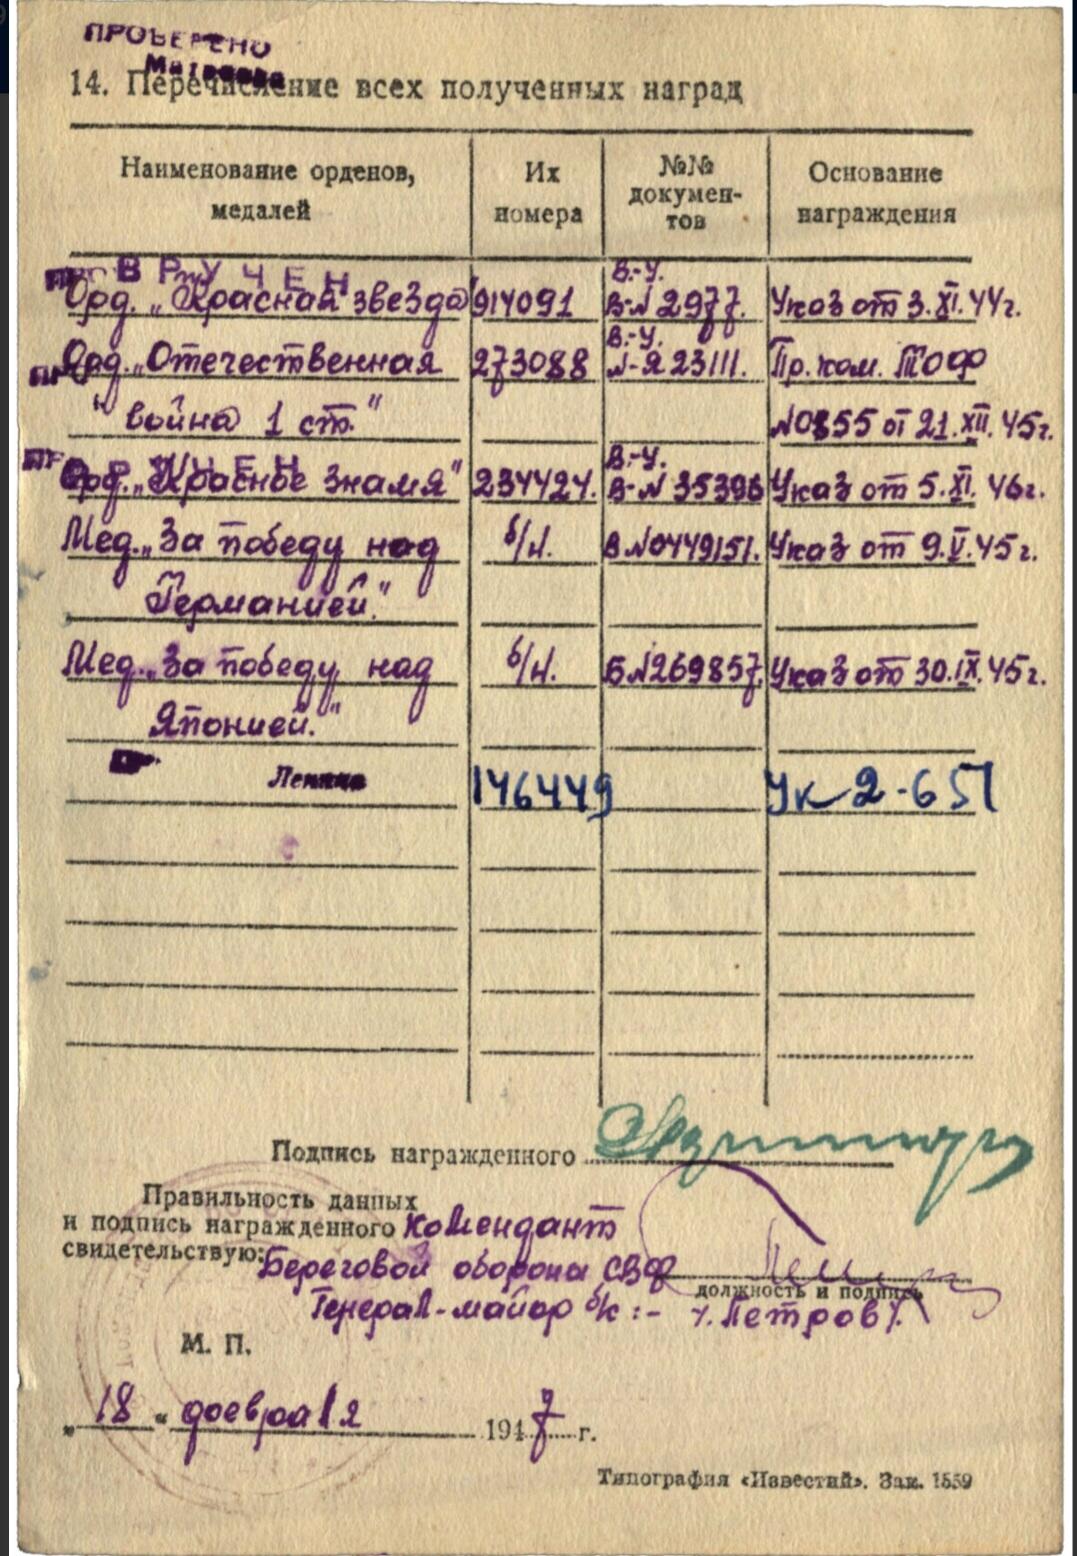 ПРОВЕРЕНО
14. Перечисление всех полученных наград
Наименование орденов, медалей
Их номера
№№ документов
Основание награждения
ВРУЧЕН
В.-У.
Орд. „Красная звезда" 914091 В-№ 2977. Указ от 3.XI.44г.
В.-У.
Орд. „Отечественная 273088 №-Я 23111. Пр. ком. ТОФ
война 1 ст." №0855 от 21.XII.45г.
В.-У.
Орд. „Красное Знамя" 234424. В-№ 35396 Указ от 5.XI.46г.
Мед. „За победу над б/н. В №0449151. Указ от 9.V.45г.
Германией."
Мед. „За победу над б/н. Б №269857. Указ от 30.IX.45г.
Японией."
Ленина 146449 Ук 2-65
Подпись награжденного
Правильность данных
и подпись награжденного Комендант
свидетельствую: Береговой оборона СВФ
должность и подпись
Генерал-майор б/к :- /. Петров /.
М. П.
„ 18 " февраля 1947 г.
Типография «Известий». Зак. 1559